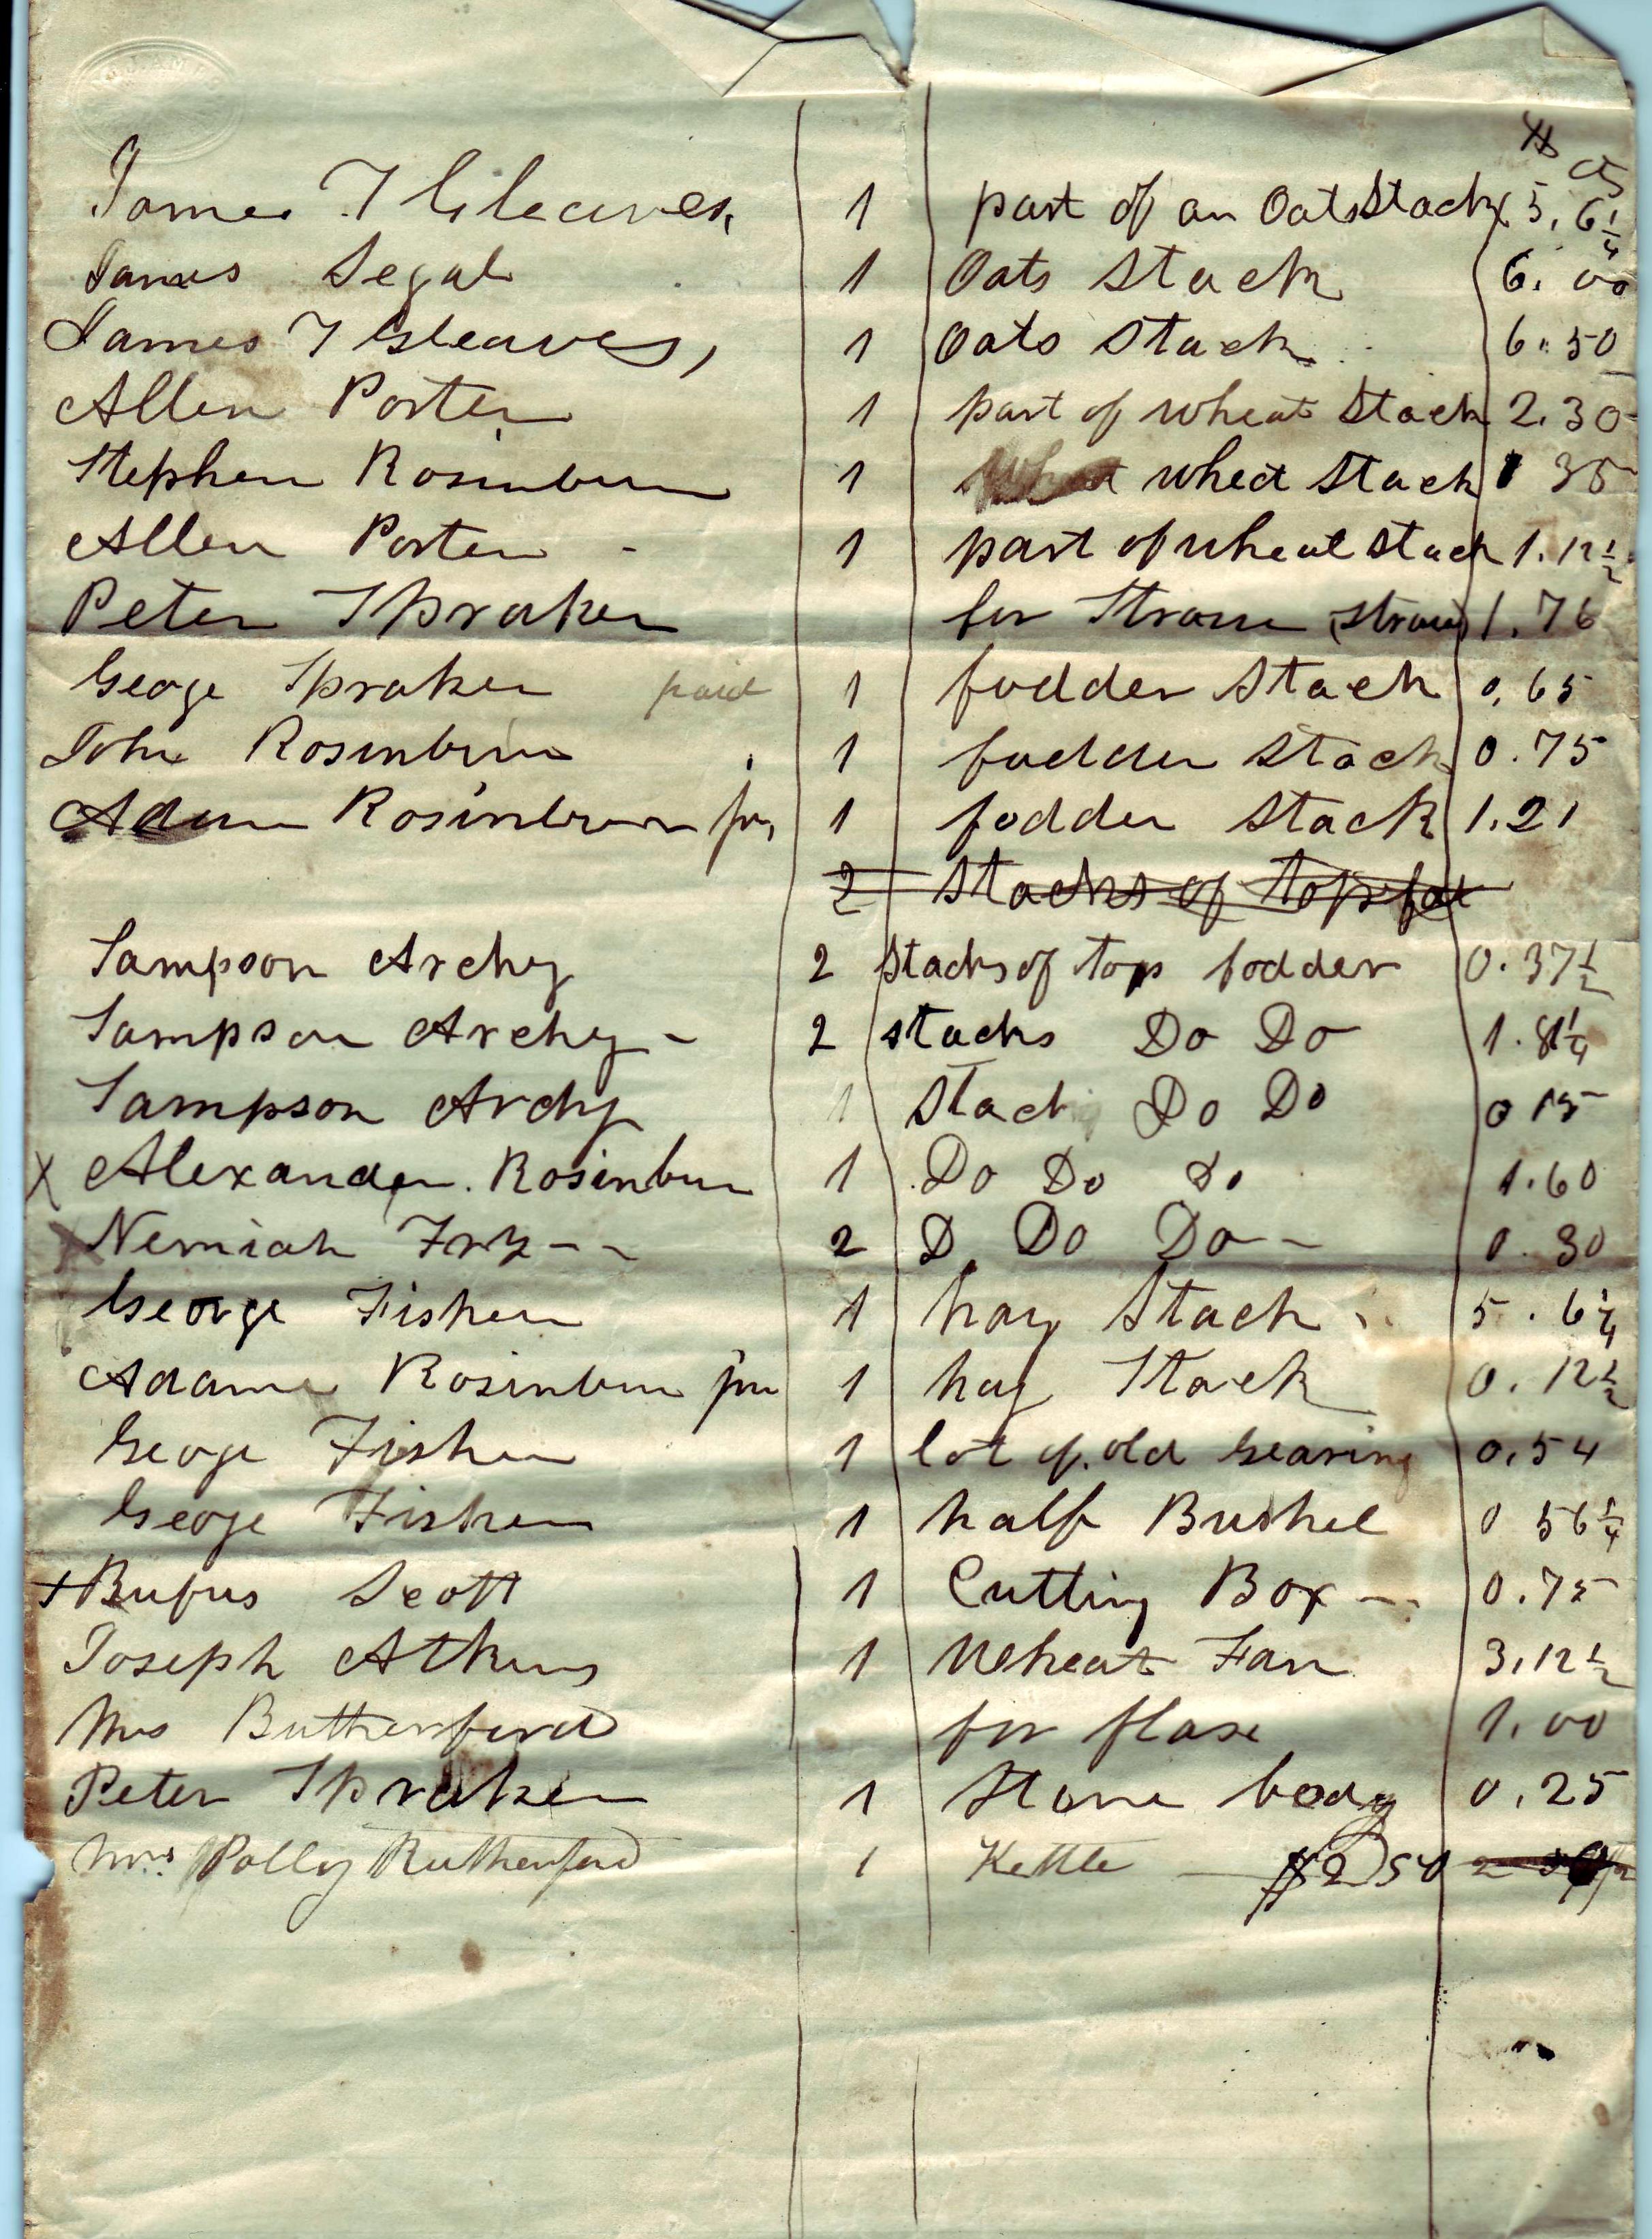 $ cts
James T Gleaves, 1 part of an Oats Stack 5. 6 1/4
James Segal 1 Oats Stack 6. 00
James T Gleaves, 1 Oats Stack 6. 50
Allen Porter 1 part of wheat Stack 2. 30
Stephen Rosinbum 1 wheat Stack 1 35
Allen Porter - 1 part of wheat Stack 1. 12 1/2
Peter Spraker for Straw (straw) 1. 76
Geoge Spraker paid 1 fodder Stack 0. 65
John Rosinbum 1 fodder Stack 0. 75
Adam Rosinbum jr, 1 fodder Stack 1. 21
2 Stacks of top fod
Sampson Archy 2 Stacks of top fodder 0. 37 1/2
Sampson Archy - 2 stacks Do Do 1. 81 1/4
Sampson Archy 1 Stack Do Do 0 15
X Alexander Rosinbum 1 Do Do Do 1. 60
X Nemiah Frz -- 2 D Do Do -- 0. 30
George Fisher 1 hay Stack 5. 6 1/4
Adam Rosinbum jnr 1 hay Stack 0. 12 1/2
Geoge Fisher 1 lot of old Gearing 0. 54
Geoge Fisher 1 half Bushel 0 56 1/4
+ Rufus Scott 1 Cutting Box -- 0. 75
Joseph Atkins 1 Wheat Fan 3. 12 1/2
Mrs Rutherford for flax 1. 00
Peter Spraker 1 Stone body 0. 25
Mrs. Polly Rutherford 1 Kettle $2 50